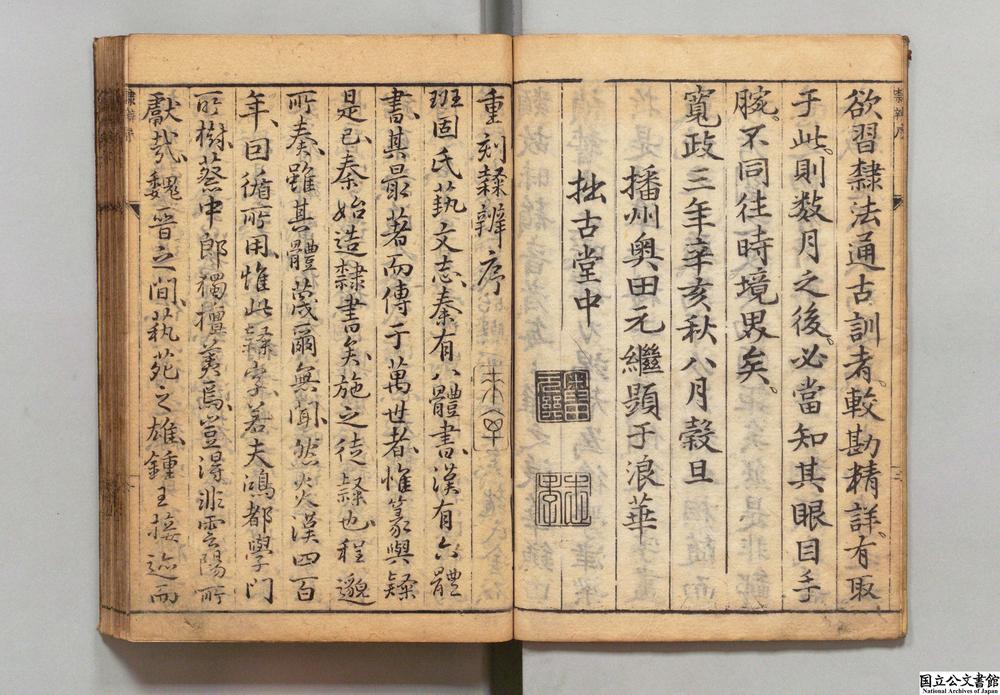 欲習隷法通古訓者。較勘精詳。有取
于此。則数月之後。必當知其眼目手
腕。不同往時境界矣。
寛政三年辛亥秋八月穀旦
播州奥田元繼顕于浪華
拙古堂中
重刻隷辨序
班固氏藝文志秦有八體書漢有六體
書其最著而傳于萬世者惟篆與隷
是已秦始造隷書矣施之徒隷也程邈
所奏雖其體茂爾無聞然炎漢四百
年回循所用惟此隷字若夫鴻都學門
所樹蔡中郎獨擅美焉豈得非雲陽所
獻哉魏晉之間藝苑之雄鍾王接迹而
国立公文書館
National Archives of Japan